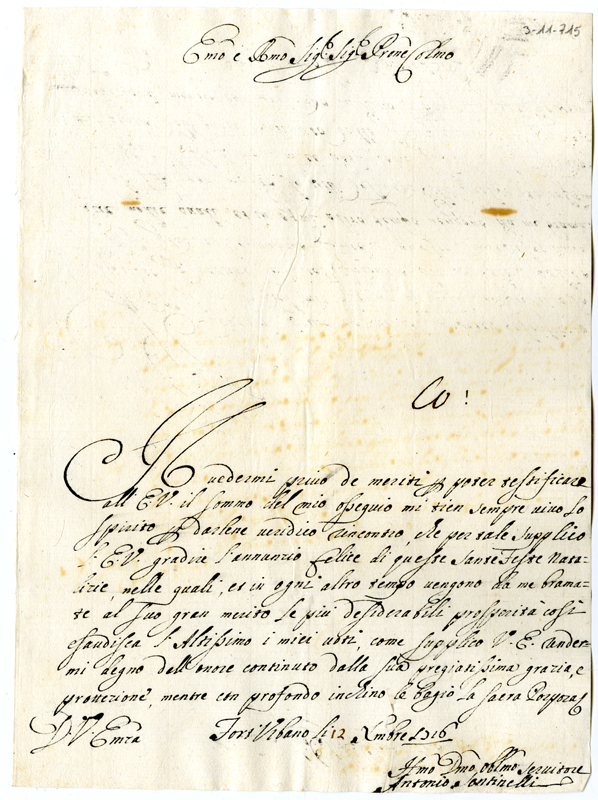 3-11-715
Emo e Rmo Sigr. Sigr. Prene Colmo
Co!
Il vedermi privo de meriti p poter testificare
all' E.V. il sommo del mio ossequio mi tien sempre vivo lo
spirito p darlene veridico rincontro, che per tale supplico
l' E.V. gradire l'annunzio felice di queste Sante Feste Nata-
lizie, nelle quali, et in ogni altro tempo vengono da me brama-
te al suo gran merito le più desiderabili prosperita così
esaudisca l'Altissimo i miei voti, come supplico V.E. render-
mi degno dell'onore continuato dalla sua pregiatissima grazia, e
protezione, mentre con profondo inchino le bagio la Sacra Porpora
D. V. Emza Fort' Urbano li 12 Xmbre 1716
Hmo Dmo, obblmo servitore
Antonio